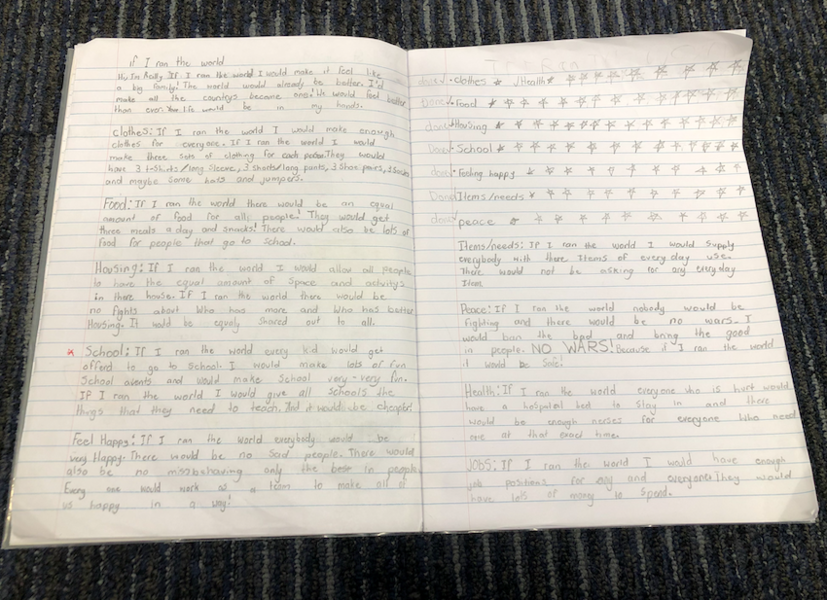 if I ran the world
Hi, I'm Reilly. If I ran the world I would make it feel like
a big family! The world would already be better. I'd
make all the countrys become one! We would feel better
than ever. Your life would be in my hands.
Clothes: If I ran the world I would make enough
clothes for everyone. If I ran the world I would
make three sets of clothing for each person. They would
have 3 t-shirts/long sleeve, 3 shorts/long pants, 3 shoe pairs, 3 socks
and maybe some hats and jumpers.
Food: If I ran the world there would be an equal
amount of food for all people! They would get
three meals a day and snacks! There would also be lots of
food for people that go to school.
Housing: If I ran the world I would allow all people
to have the equal amount of space and activitys
in there house. If I ran the world there would be
no fights about who has more and who has better
Housing. It would be equaly shared out to all.
* School: If I ran the world every kid would get
afford to go to school. I would make lots of fun
School events and would make School very-very fun.
If I ran the world I would give all schools the
things that they need to teach. And it would be cheaper!
Feel Happy: If I ran the world everybody would be
very Happy. There would be no Sad people. There would
also be no missbehaving only the best in people.
Every one would work as a team to make all of
us happy in a way!
done • Clothes ✓Health
Done • Food
done • Housing
Done • School
done • Feeling happy
Done Items/needs
done peace
Items/needs: If I ran the world I would supply
everybody with there Items of every day use.
There would not be asking for any everyday
Item
Peace: If I ran the world nobody would be
fighting and there would be no wars. I
would ban the bad and bring the good
in people. NO WARS! Because if I ran the world
it would be Safe!
Health: If I ran the world everyone who is hurt would
have a hospital bed to stay in and there
would be enough nerses for everyone who need
one at that exact time.
Jobs: If I ran the world I would have enough
job positions for any and everyone. They would
have lots of money to spend.